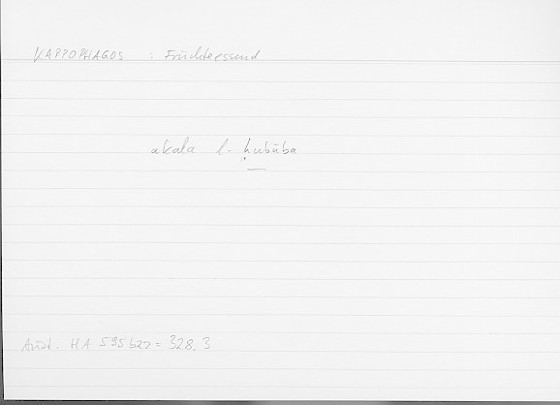 KARPOPHAGOS : Früchteessend
akala l-ḥubūba
Arist. HA 595b27 = 328.3